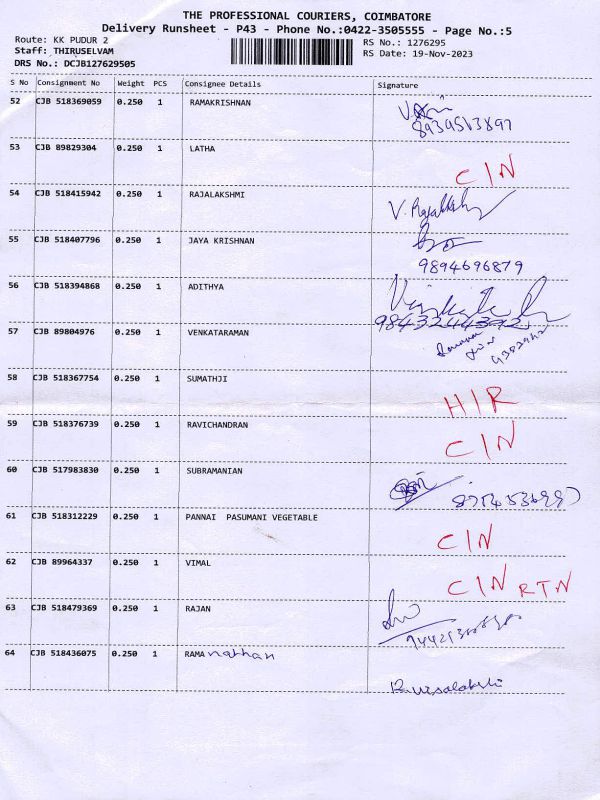 THE PROFESSIONAL COURIERS, COIMBATORE
Delivery Runsheet - P43 - Phone No.:0422-3505555 - Page No.:5
Route: KK PUDUR 2
RS No.: 1276295
Staff: THIRUSELVAM
RS Date: 19-Nov-2023
DRS No.: DCJB127629505
S No Consignment No Weight PCS Consignee Details Signature
52 CJB 518369059 0.250 1 RAMAKRISHNAN
53 CJB 89829304 0.250 1 LATHA
CIN
54 CJB 518415942 0.250 1 RAJALAKSHMI
V. Rajalakshmi
55 CJB 518407796 0.250 1 JAYA KRISHNAN
9894696879
56 CJB 518394868 0.250 1 ADITHYA
9843244392
57 CJB 89804976 0.250 1 VENKATARAMAN
58 CJB 518367754 0.250 1 SUMATHJI
HIR
59 CJB 518376739 0.250 1 RAVICHANDRAN
CIN
60 CJB 517983830 0.250 1 SUBRAMANIAN
61 CJB 518312229 0.250 1 PANNAI PASUMANI VEGETABLE
CIN
62 CJB 89964337 0.250 1 VIMAL
CIN RTN
63 CJB 518479369 0.250 1 RAJAN
64 CJB 518436075 0.250 1 RAMA nathan
R. Visalakshi